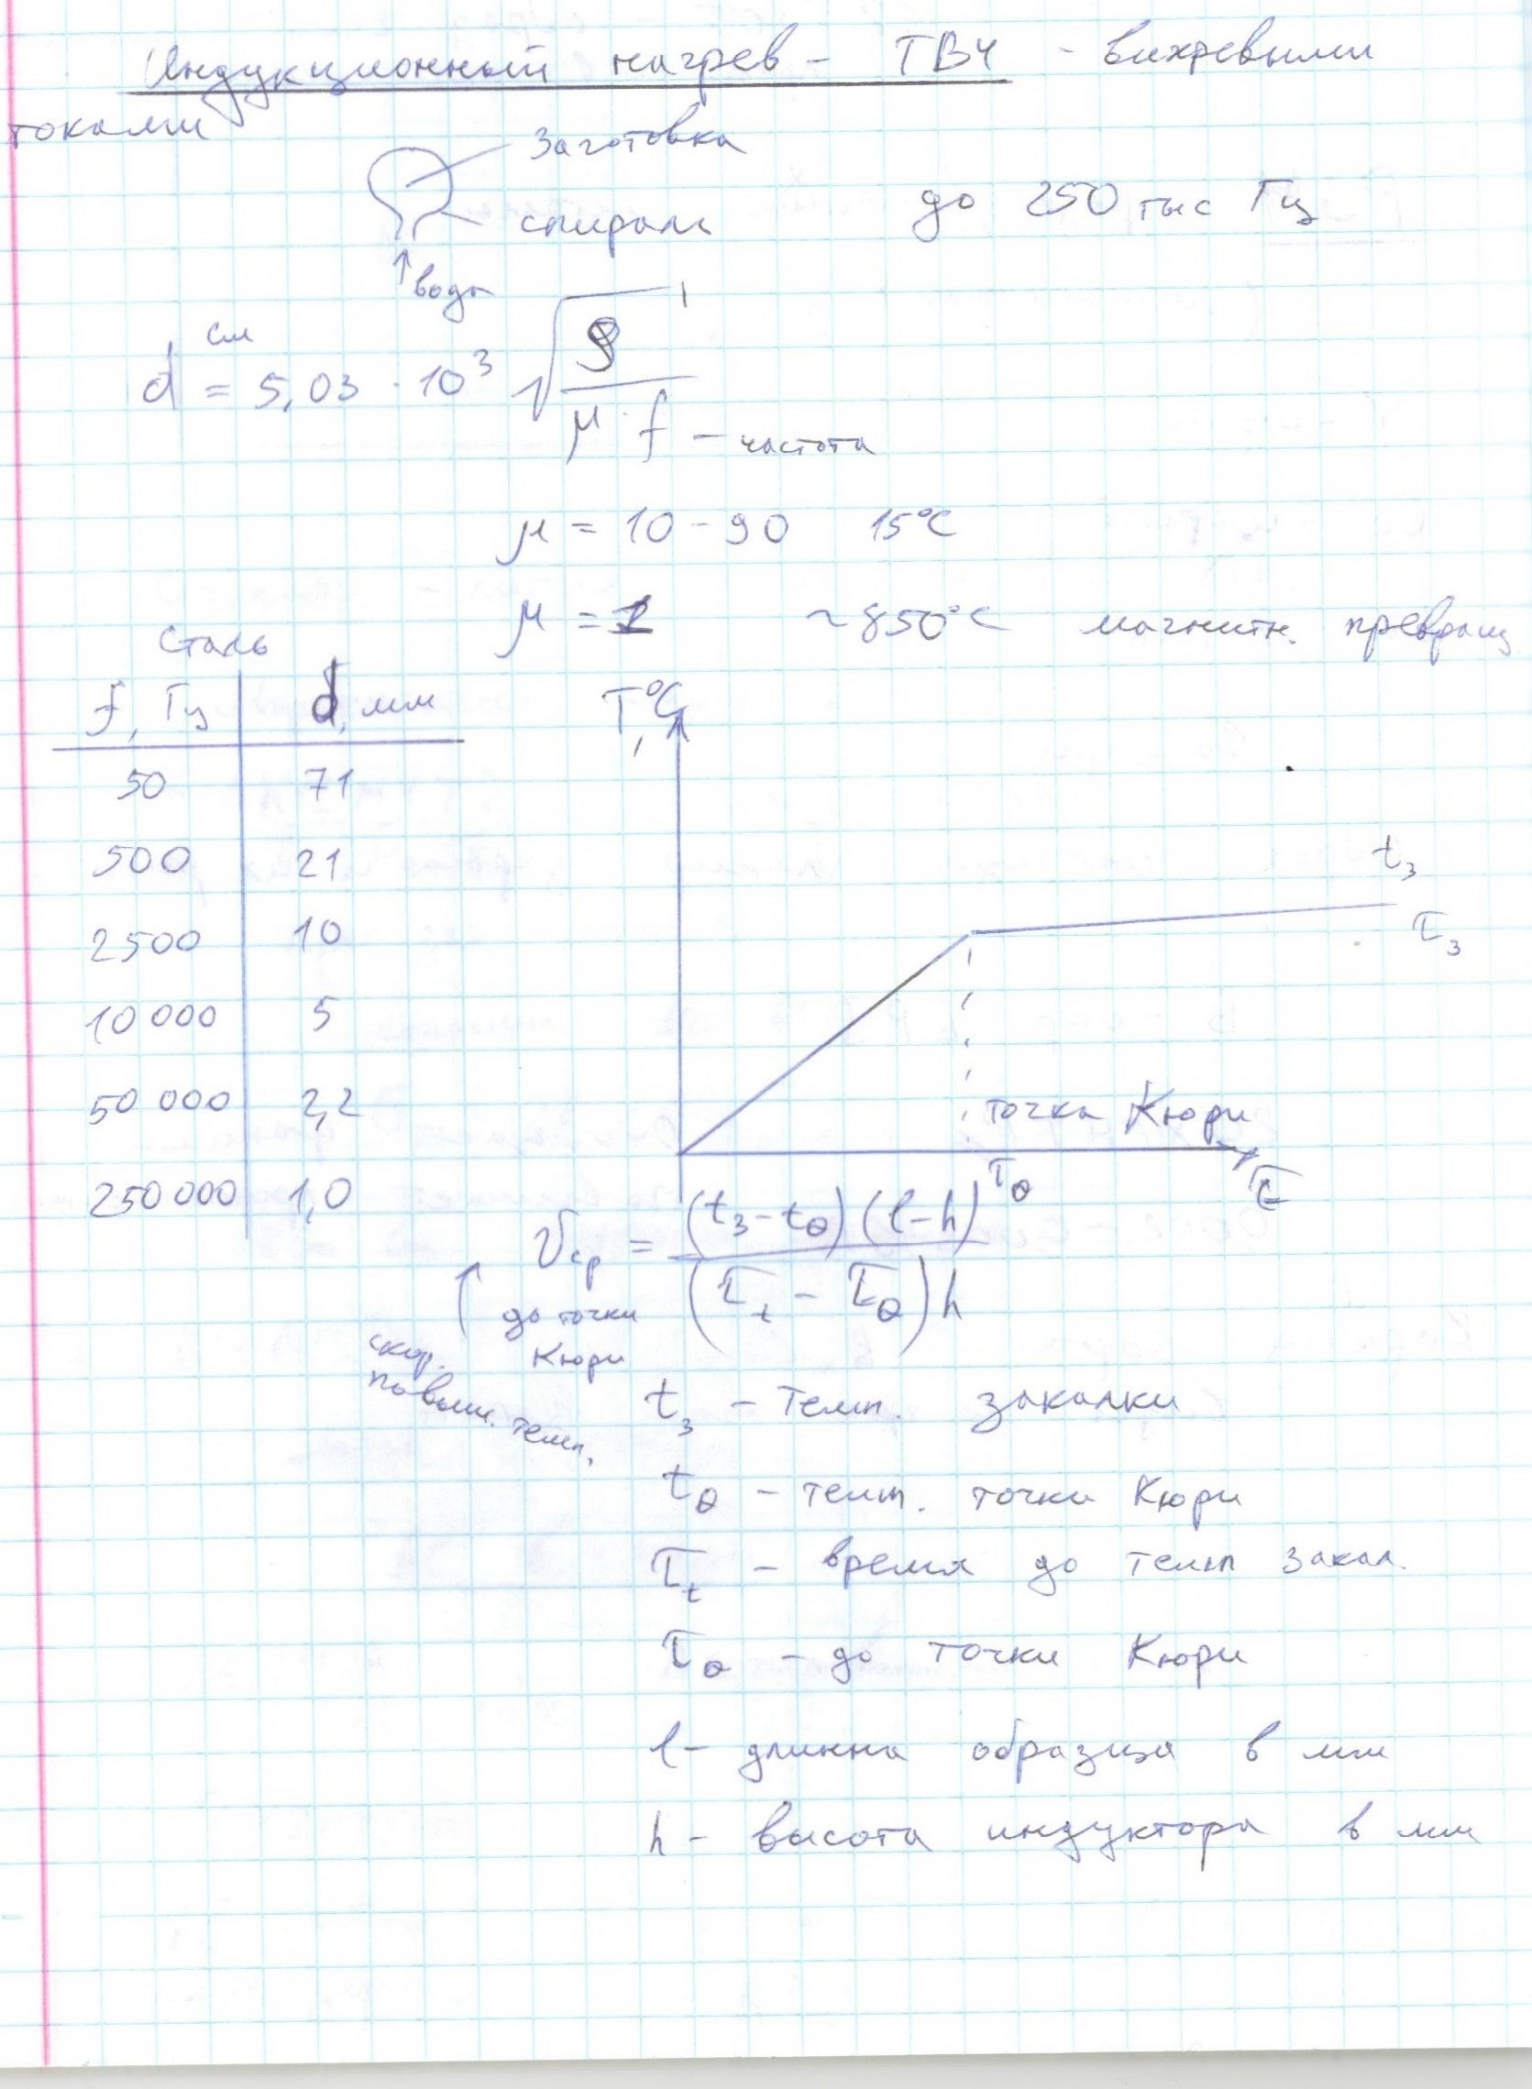 Индукционный нагрев - ТВЧ - вихревыми
токами
Заготовка
спираль
до 250 тыс Гц
вода
d см = 5,03 · 10³ √(ρ / μ · f) - частота
μ = 10 - 90 15°C
μ = 1 ~ 850°C магнитн. превращ
Сталь
f, Гц d, мм
50 71
500 21
2500 10
10 000 5
50 000 2,2
250 000 1,0
T,°C
t₃
τ₃
точка Кюри
τ_θ
τ
V ср = (t₃ - t_θ) (l - h) / (τ_t - τ_θ) h
до точки
Кюри
скор.
повыш. темп.
t₃ - темп. закалки
t_θ - темп. точки Кюри
τ_t - время до темп закал.
τ_θ - до точки Кюри
l - длинна образца в мм
h - высота индуктора в мм